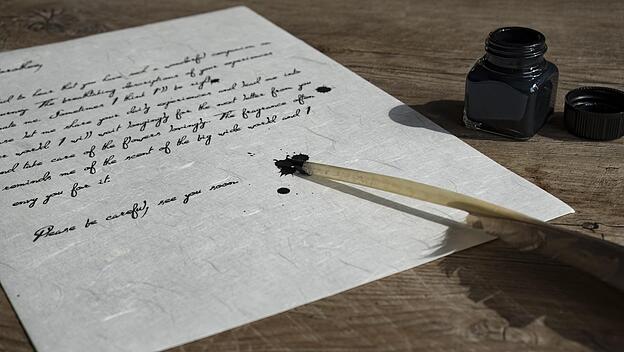 to hear that you have met a wonderful companion on
The breathtaking descriptions of your experiences
me. Sometimes I think I'll be right
let me share your daily experiences and lead me into
world. I will wait longingly for the next letter from you
and take care of the flowers lovingly. The fragrance often
reminds me of the scent of the big wide world and I
envy you for it.
Please be careful, see you soon